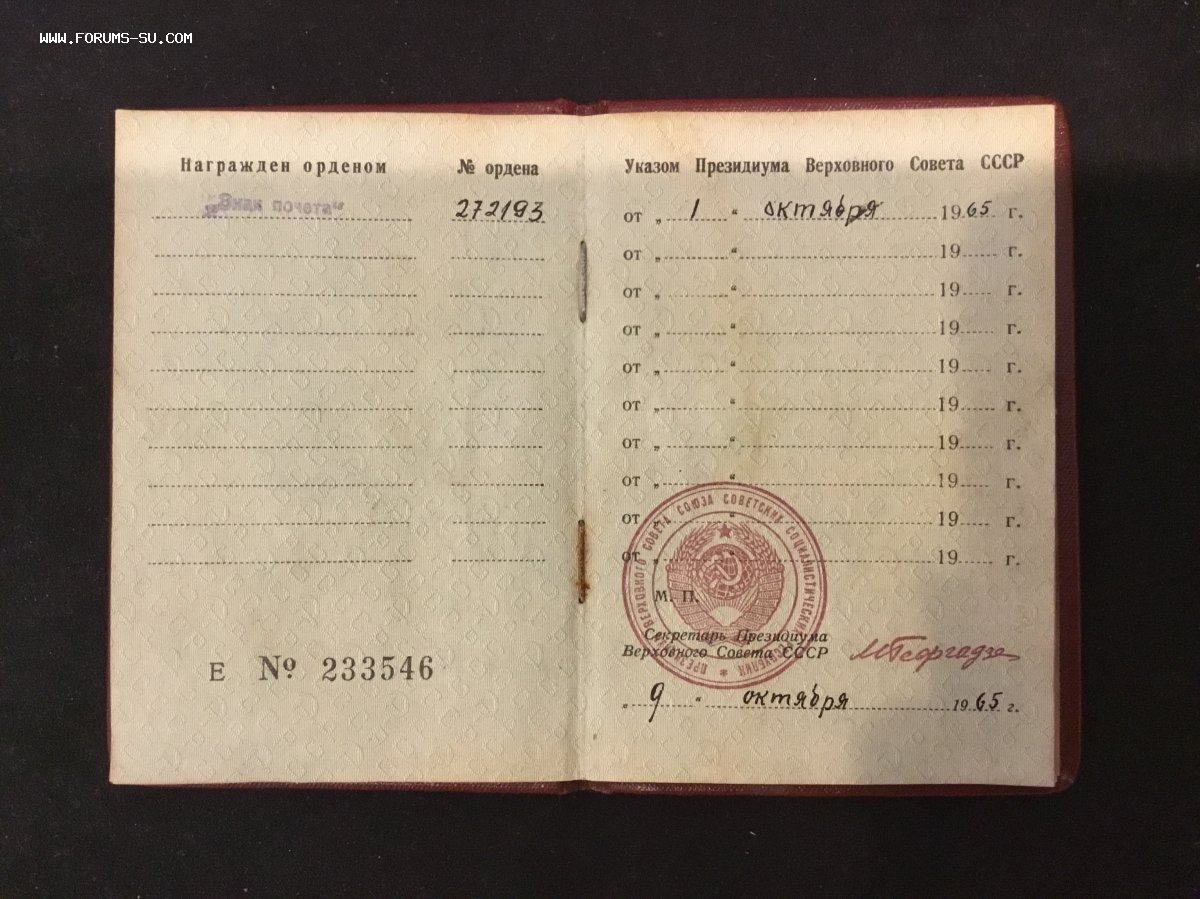 WWW.FORUMS-SU.COM
Награжден орденом № ордена
„Знак Почета“ 272193
Е № 233546
Указом Президиума Верховного Совета СССР
от „ 1 “ октября 1965 г.
от „ “ 19 г.
от „ “ 19 г.
от „ “ 19 г.
от „ “ 19 г.
от „ “ 19 г.
от „ “ 19 г.
от „ “ 19 г.
от „ “ 19 г.
от „ “ 19 г.
ПРЕЗИДИУМ ВЕРХОВНОГО СОВЕТА СОЮЗА СОВЕТСКИХ СОЦИАЛИСТИЧЕСКИХ РЕСПУБЛИК
М. П.
Секретарь Президиума
Верховного Совета СССР МГеоргадзе
„ 9 “ октября 1965 г.